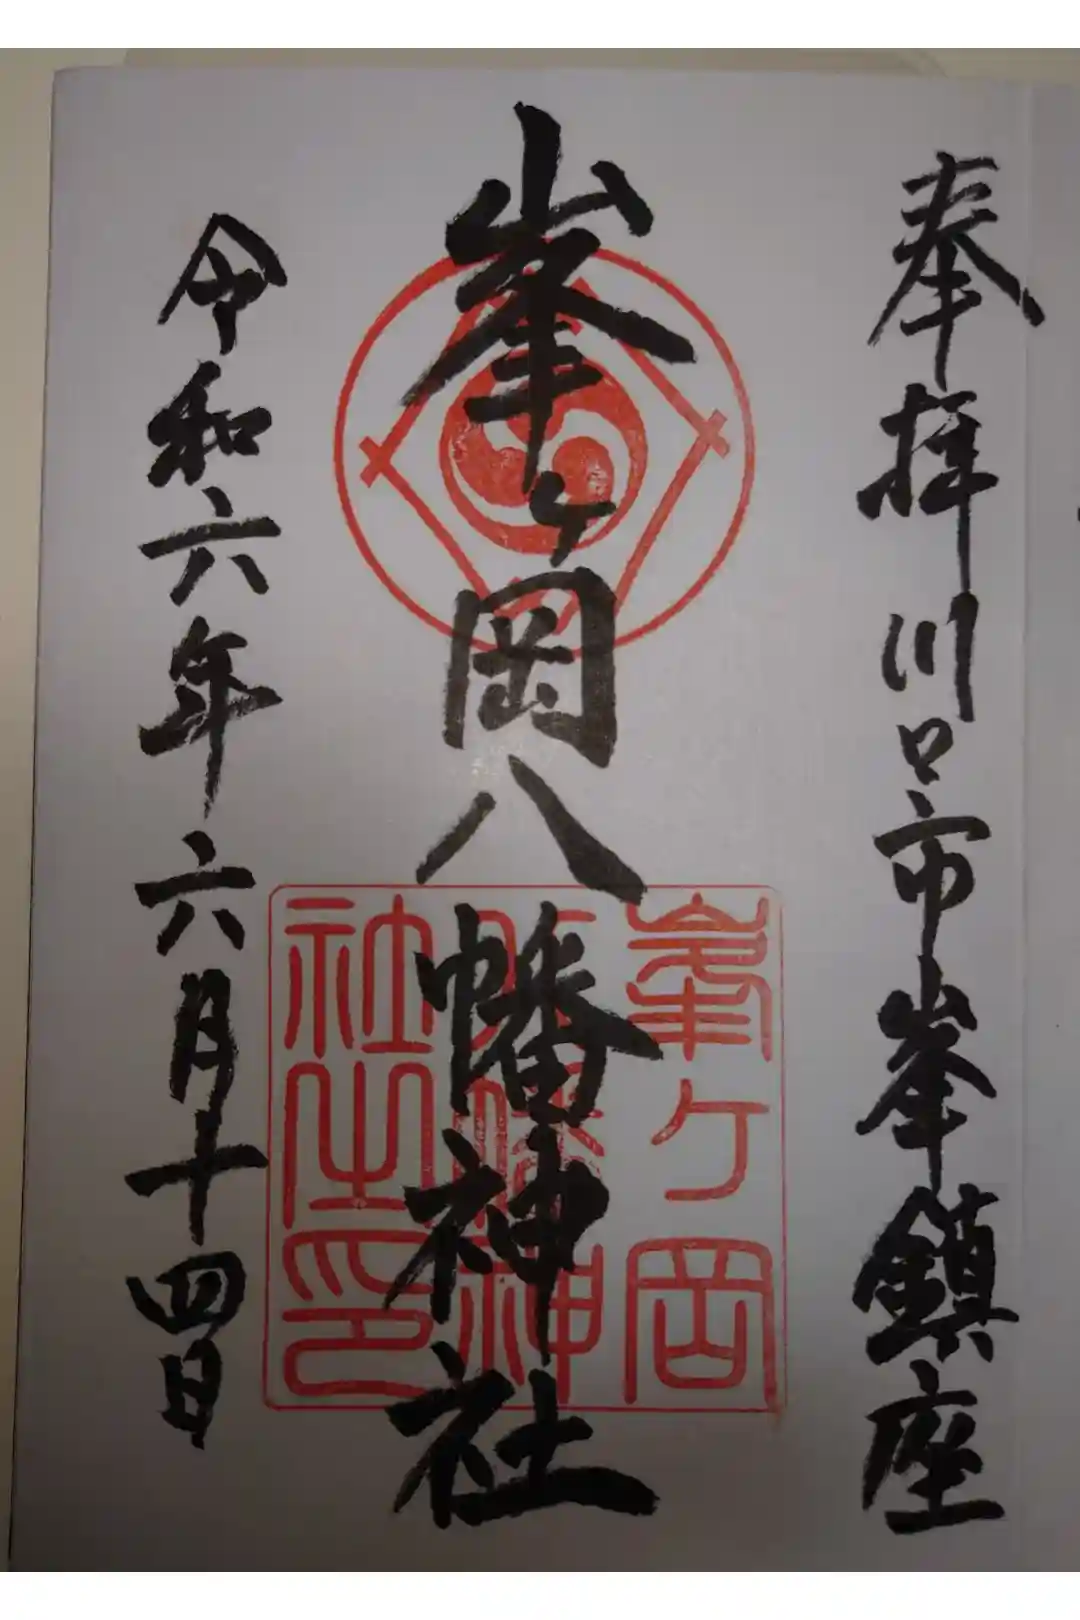 奉拝 川口市峯鎮座
峯ヶ岡八幡神社
令和六年六月十四日
峯ヶ岡
八幡神
社之印